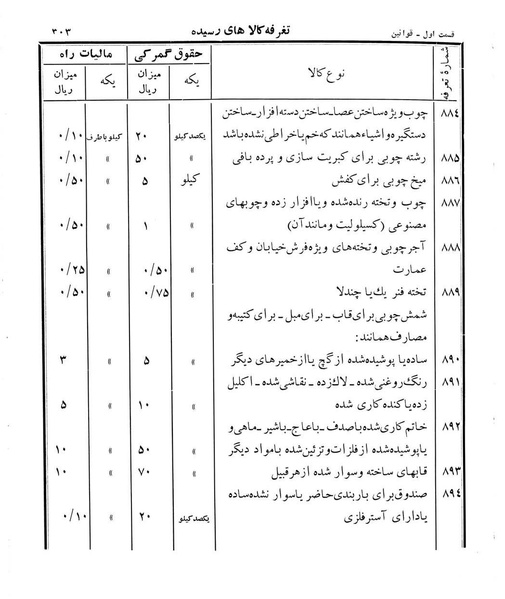 قسمت اول ــ قوانین تغرفه کالا های رسیده ۳۰۳
شمارهٔ تعرفه نوع کالا حقوق گمرکی مالیات راه
یکه میزان ریال یکه میزان ریال
۸۸۴ چوب ویژه ساختن عصا ــ ساختن دسته افزار ــ ساختن
دستگیره و اشیاء همانند که خم یا خراطی نشده باشد یکصد کیلو ۲۰ کیلو باظرف ۰/۱۰
۸۸۵ رشته چوبی برای کبریت سازی و پرده بافی » ۵۰ » ۰/۱۰
۸۸۶ میخ چوبی برای کفش کیلو ۵ » ۰/۵۰
۸۸۷ چوب و تخته رنده شده و یا افزار زده و چوبهای
مصنوعی (کسیلولیت و مانند آن) » ۱ » ۰/۵۰
۸۸۸ آجر چوبی و تخته‌های ویژه فرش خیابان و کف
عمارت » ۰/۵۰ » ۰/۲۵
۸۸۹ تخته فنر یك یا چندلا » ۰/۷۵ » ۰/۵۰
شمش چوبی برای قاب ــ برای مبل ــ برای کتیبه و
مصارف همانند:
۸۹۰ ساده یا پوشیده شده از گچ یا از خمیرهای دیگر » ۵ » ۳
۸۹۱ رنگ روغنی شده ــ لاك زده ــ نقاشی شده ــ اکلیل
زده یا کنده کاری شده » ۱۰ » ۵
۸۹۲ خاتم کاری شده با صدف ــ با عاج ــ با شیر ــ ماهی و
یا پوشیده شده از فلزات و تزئین شده با مواد دیگر » ۵۰ » ۱۰
۸۹۳ قابهای ساخته و سوار شده از هر قبیل » ۷۰ » ۱۰
۸۹۴ صندوق برای باربندی حاضر یا سوار نشده ساده
یا دارای آستر فلزی یکصد کیلو ۲۰ » ۰/۱۰